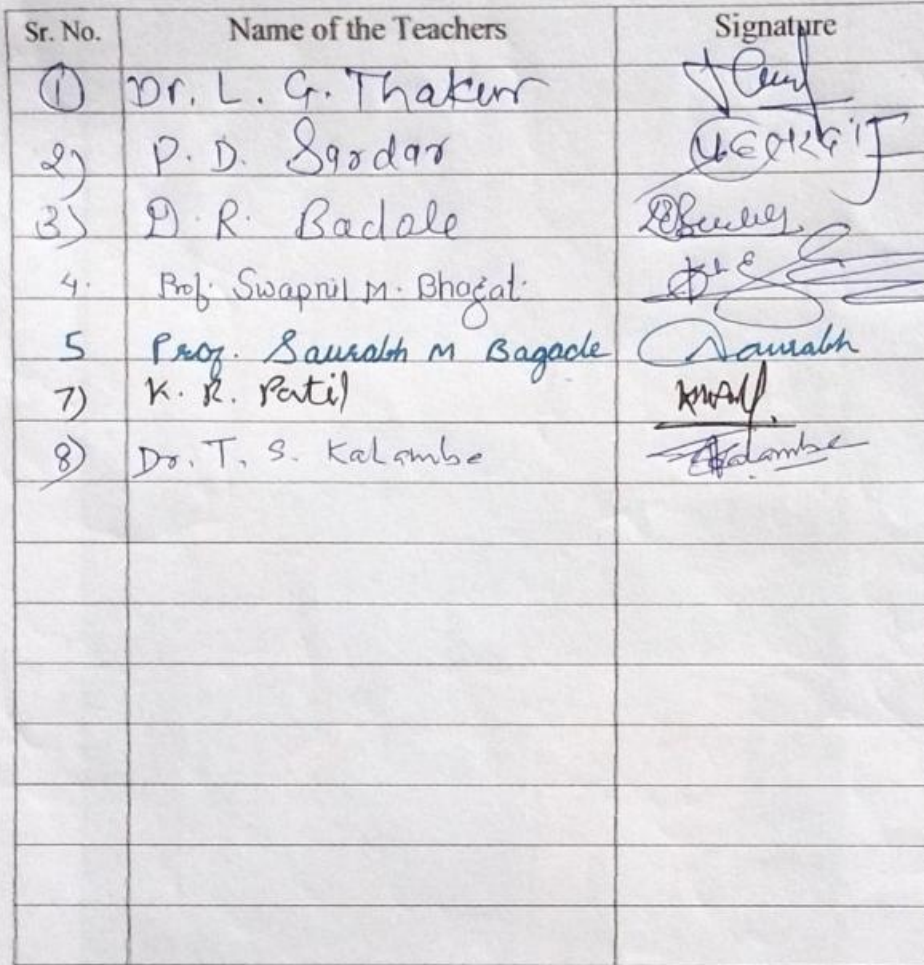 Sr. No. Name of the Teachers Signature
1 Dr. L. G. Thakur
2) P. D. Sardar
3) D. R. Badole
4. Prof. Swapnil M. Bhagat
5 Prof. Saurabh M Bagade Saurabh
7) K. R. Patil
8) Dr. T. S. Kalambe Kalambe